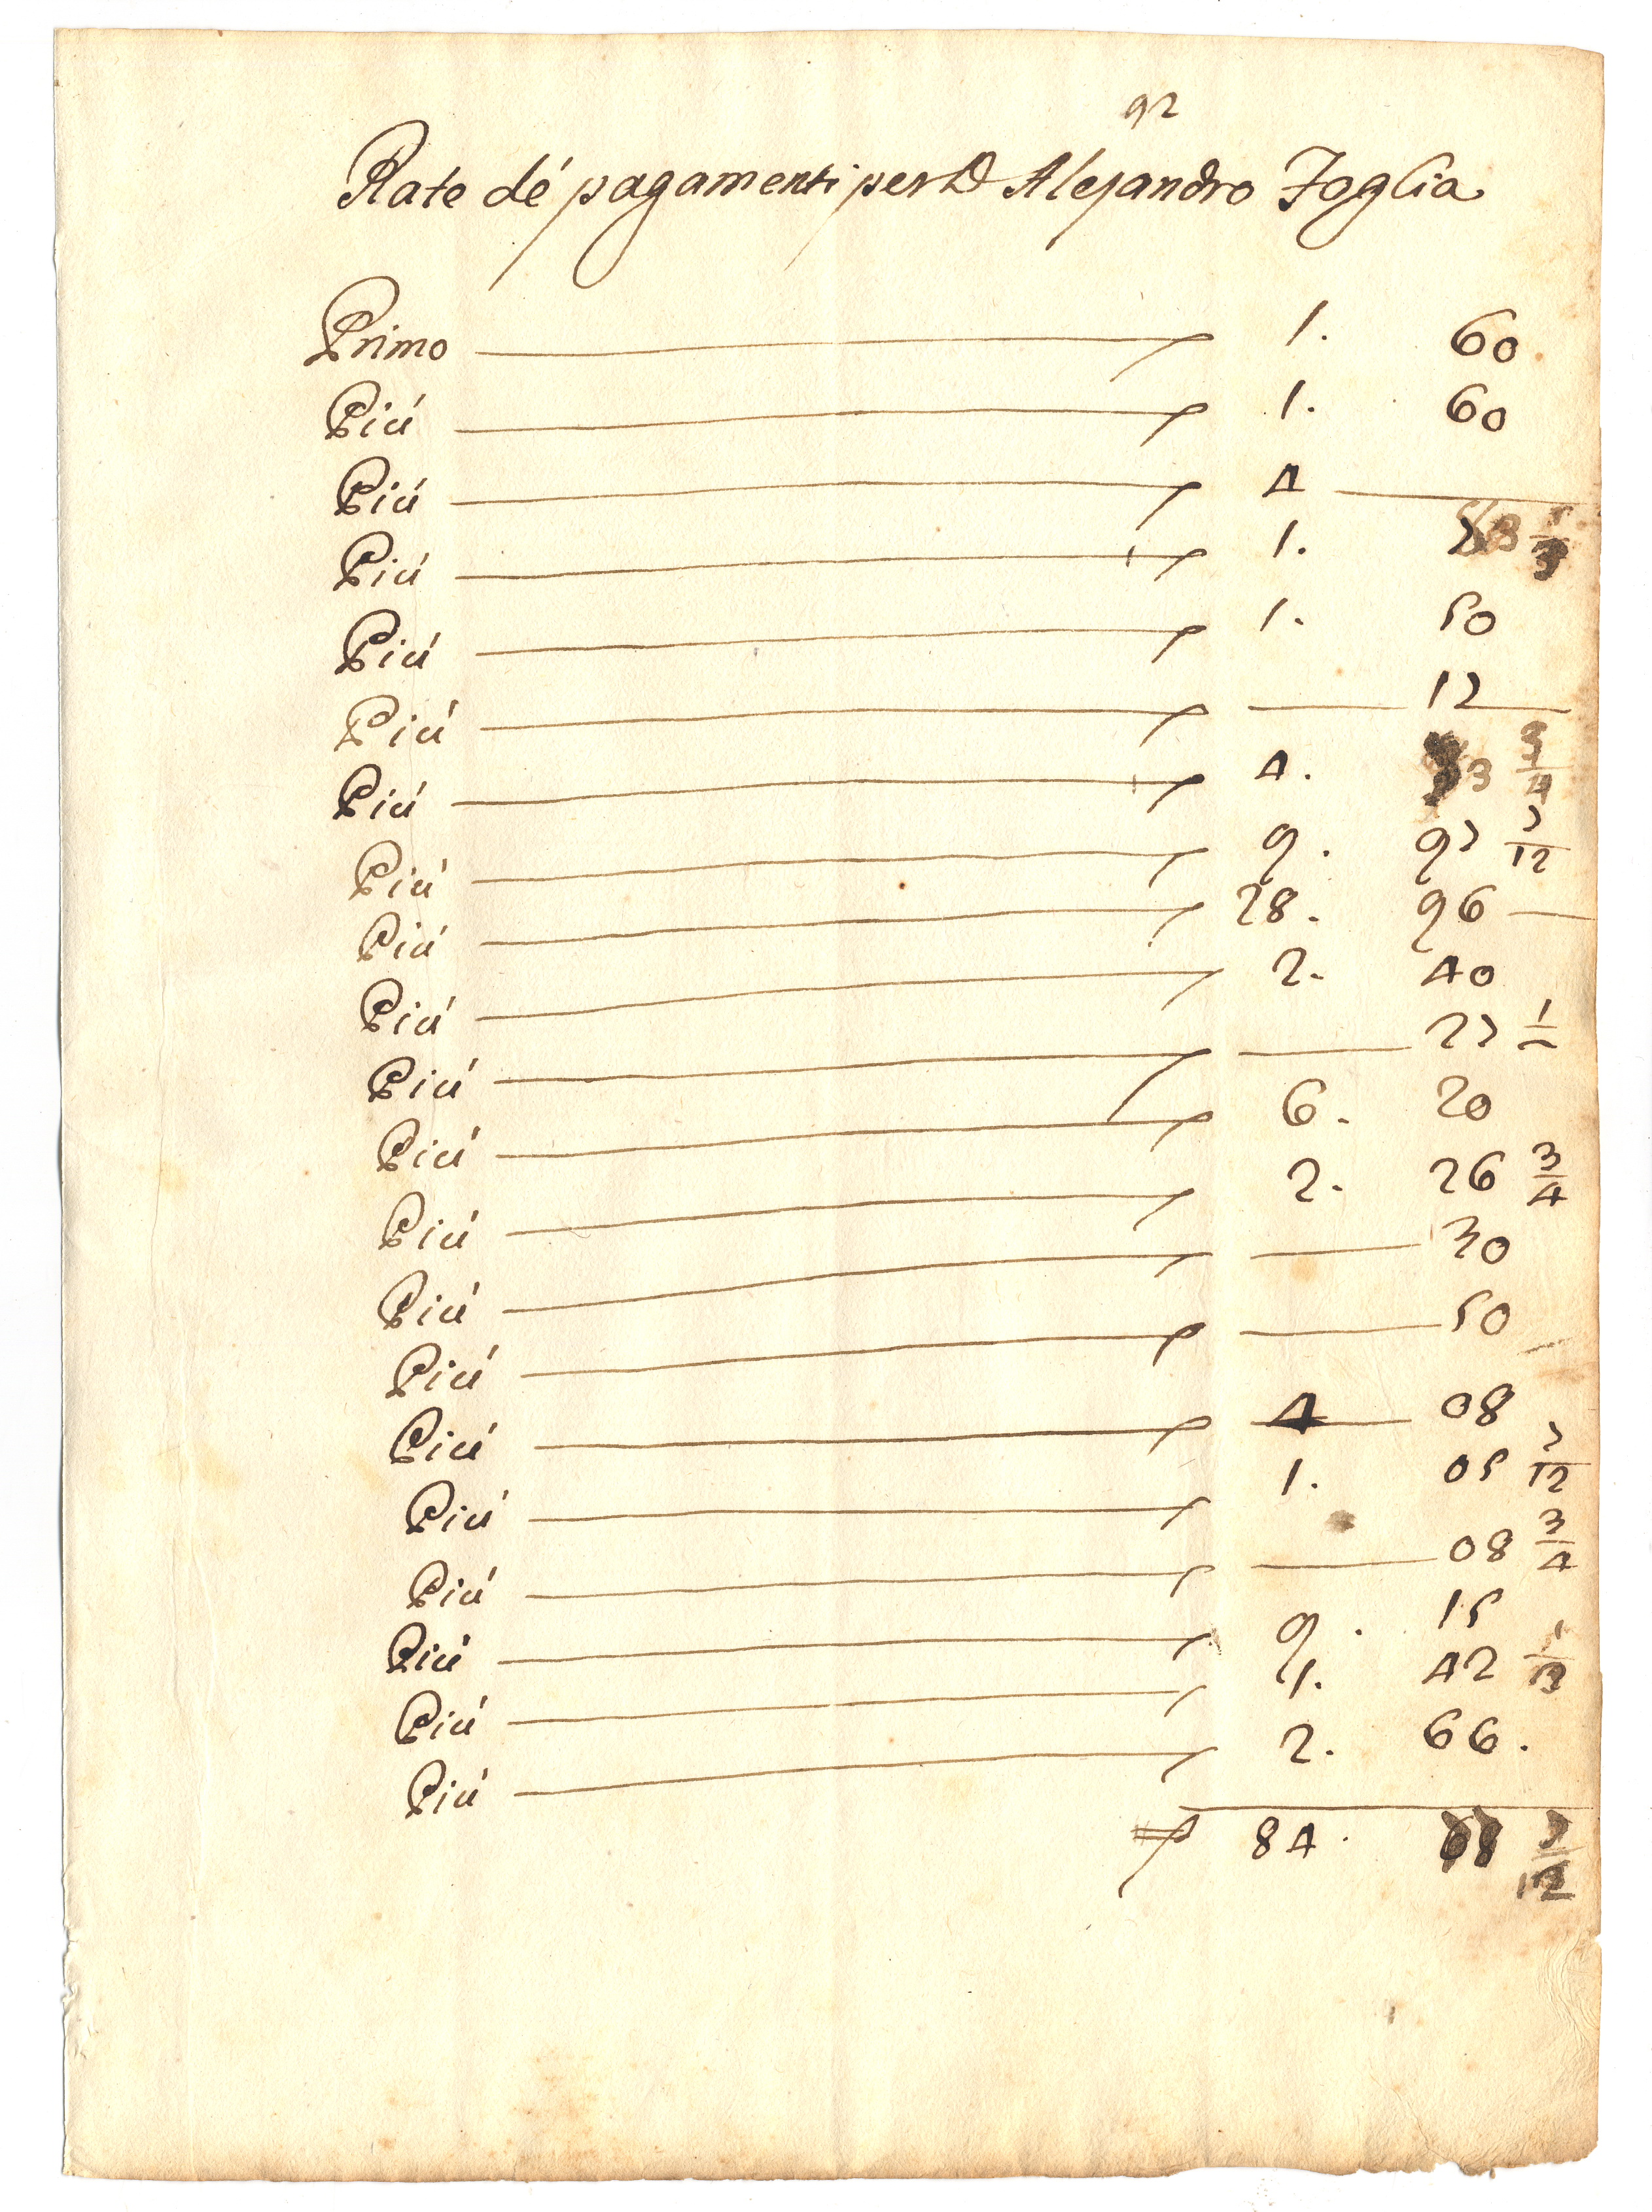 92
Rate dé pagamenti per D Alejandro Foglia
Primo 1. 60
Piú 1. 60
Piú 4
Piú 1.
Piú 1. 50
Piú 17
Piú 4. 3 3/4
Piú 9. 97 7/12
Piú 28. 96
Piú 2. 40
Piú 27 1/
Piú 6. 20
Piú 2. 26 3/4
Piú 30
Piú 50
Piú 4 08
Piú 1. 05 7/12
Piú 08 3/4
Piú 9. 15
Piú 1. 42
Piú 2. 66.
84.